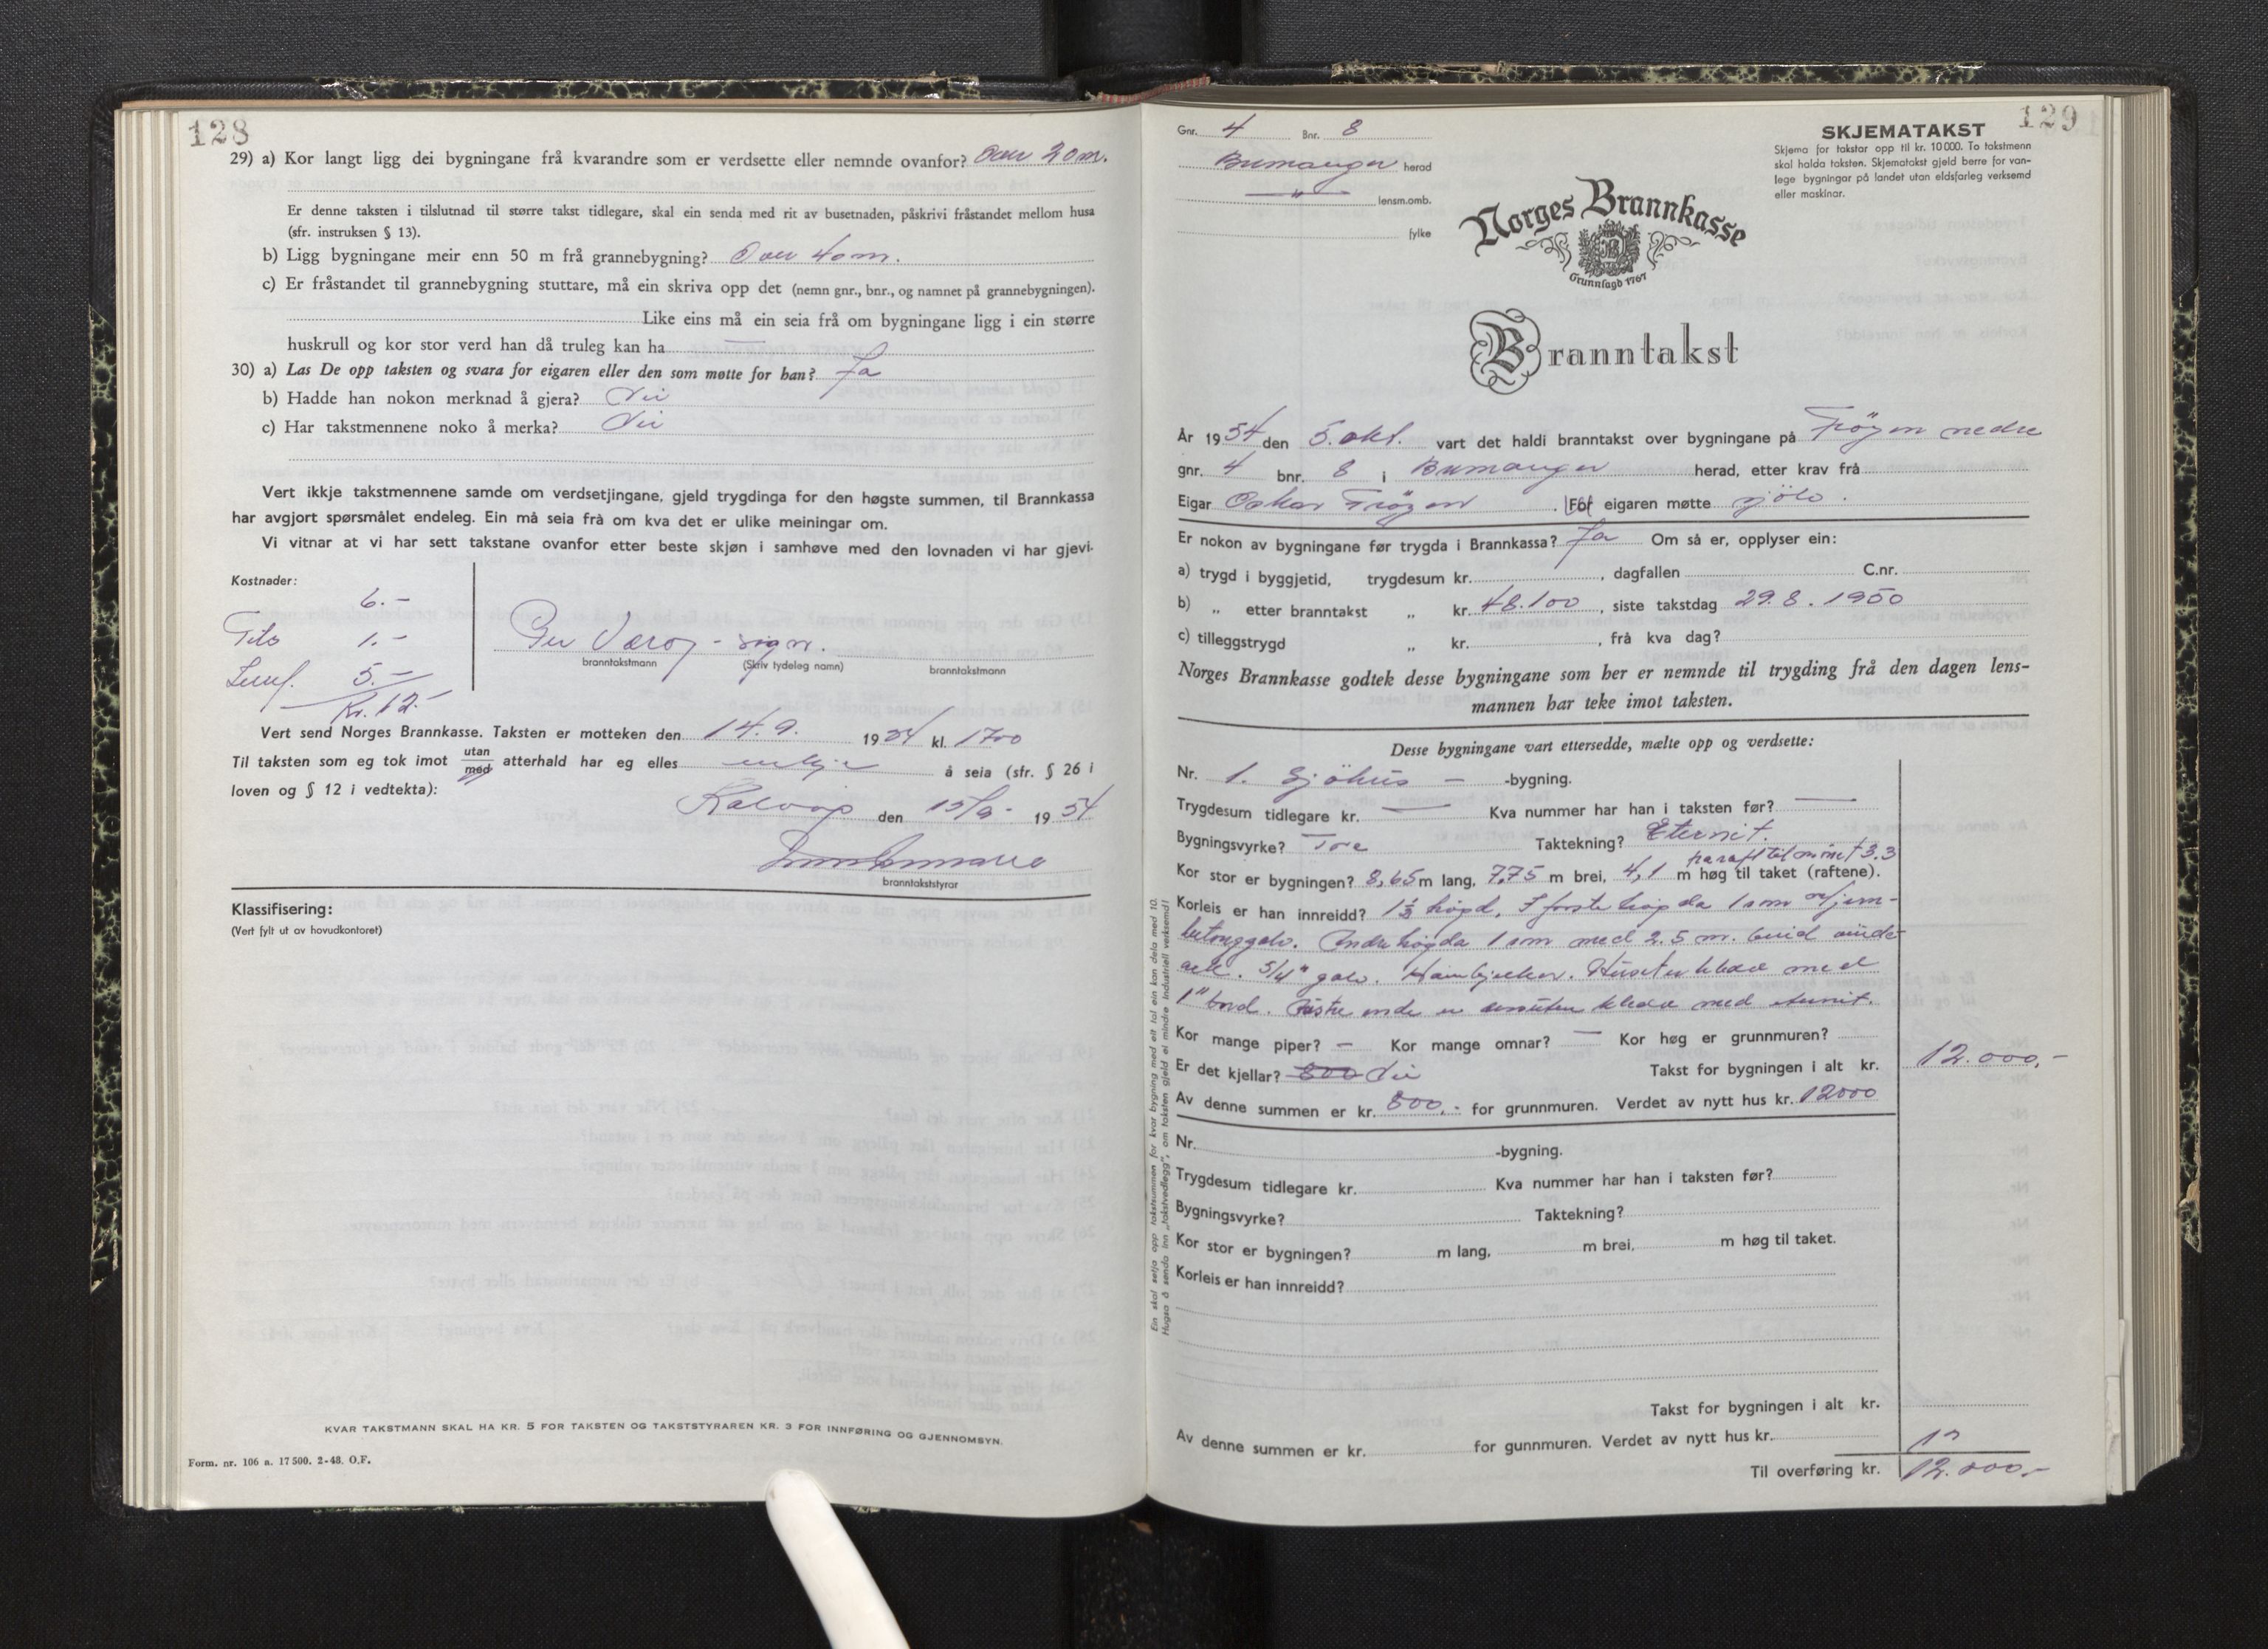 128
29) a) Kor langt ligg dei bygningane frå kvarandre som er verdsette eller nemnde ovanfor? Over 20 m.
Er denne taksten i tilslutnad til større takst tidlegare, skal ein senda med rit av busetnaden, påskrivi fråstandet mellom husa
(sfr. instruksen § 13).
b) Ligg bygningane meir enn 50 m frå grannebygning? Over 40 m.
c) Er fråstandet til grannebygning stuttare, må ein skriva opp det (nemn gnr., bnr., og namnet på grannebygningen).
Like eins må ein seia frå om bygningane ligg i ein større
huskrull og kor stor verd han då truleg kan ha —
30) a) Las De opp taksten og svara for eigaren eller den som møtte for han? Ja
b) Hadde han nokon merknad å gjera? Nei
c) Har takstmennene noko å merka? Nei
Vert ikkje takstmennene samde om verdsetjingane, gjeld trygdinga for den høgste summen, til Brannkassa
har avgjort spørsmålet endeleg. Ein må seia frå om kva det er ulike meiningar om.
Vi vitnar at vi har sett takstane ovanfor etter beste skjøn i samhøve med den lovnaden vi har gjevi.
Kostnader:
6.–
1.–
5.–
Kr. 12.–
Per sign.
branntakstmann (Skriv tydeleg namn) branntakstmann
Vert send Norges Brannkasse. Taksten er motteken den 14.9. 1954 kl. 1700
Til taksten som eg tok imot utan/med atterhald har eg elles å seia (sfr. § 26 i
loven og § 12 i vedtekta):
Kalvåg den 15/9 - 1954
branntakststyrar
Klassifisering:
(Vert fylt ut av hovudkontoret)
KVAR TAKSTMANN SKAL HA KR. 5 FOR TAKSTEN OG TAKSTSTYRAREN KR. 3 FOR INNFØRING OG GJENNOMSYN.
Form. nr. 106 a. 17 500. 2-48. O.F.
129
Gnr. 4 Bnr. 8
Bremanger herad
— " — lensm.omb.
fylke
SKJEMATAKST
Skjema for takstar opp til kr. 10 000. To takstmenn
skal halda taksten. Skjematakst gjeld berre for van-
lege bygningar på landet utan eldsfarleg verksemd
eller maskinar.
Norges Brannkasse
Grunnlagd 1767
Branntakst
År 1954 den 5. okt. vart det haldi branntakst over bygningane på Fröyen nedre
gnr. 4 bnr. 8 i Bremanger herad, etter krav frå
Eigar Oskar Fröyen. For eigaren møtte sjölv.
Er nokon av bygningane før trygda i Brannkassa? Ja Om så er, opplyser ein:
a) trygd i byggjetid, trygdesum kr. , dagfallen C.nr.
b) „ etter branntakst „ kr. 48.100, siste takstdag 29.8.1950
c) tilleggstrygd „ kr. , frå kva dag?
Norges Brannkasse godtek desse bygningane som her er nemnde til trygding frå den dagen lens-
mannen har teke imot taksten.
Desse bygningane vart ettersedde, mælte opp og verdsette:
Nr. 1. Sjöhus — -bygning.
Trygdesum tidlegare kr. — Kva nummer har han i taksten før? —
Bygningsvyrke? Tre Taktekning? Eternit.
fra raft til møne 3.3
Kor stor er bygningen? 8,65 m lang, 7,75 m brei, 4,1 m høg til taket (raftene).
Korleis er han innreidd? 1½ högd. I förste högda 1 rom m/jern-
betonggolv. Andre högda 1 rom med 2.5 m. breid
ark. 5/4" golv. Huset er kledd med
1" bord. Östre ende er kledd med eternit.
Kor mange piper? — Kor mange omnar? — Kor høg er grunnmuren?
Er det kjellar? 800 Nei Takst for bygningen i alt kr. 12.000,–
Av denne summen er kr. 800.– for grunnmuren. Verdet av nytt hus kr. 12000
Nr. -bygning.
Trygdesum tidlegare kr. Kva nummer har han i taksten før?
Bygningsvyrke? Taktekning?
Kor stor er bygningen? m lang, m brei, m høg til taket.
Korleis er han innreidd?
Takst for bygningen i alt kr.
Av denne summen er kr. for gunnmuren. Verdet av nytt hus kr.
Til overføring kr. 12.000.–
Ein skal setja opp takstsummen for kvar bygning med eit tal ein kan dela med 10.
Hugsa å senda inn „takstvedlegg", om taksten gjeld ei mindre industriell verksemd!